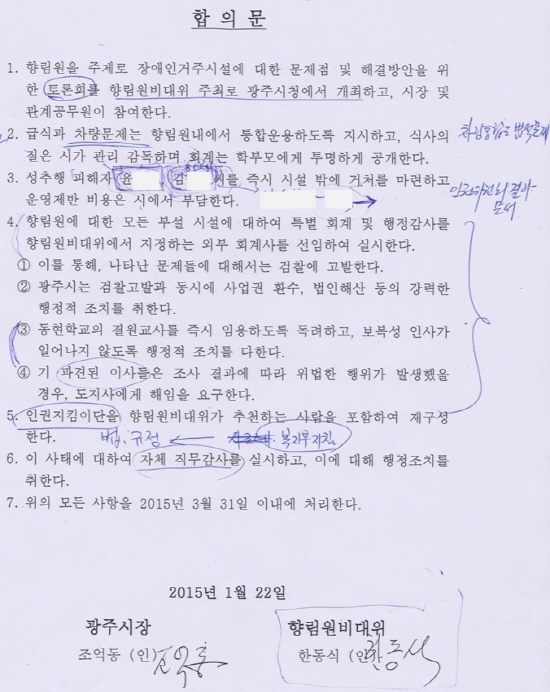 합 의 문
1. 향림원을 주제로 장애인거주시설에 대한 문제점 및 해결방안을 위
한 토론회를 향림원비대위 주최로 광주시청에서 개최하고, 시장 및
관계공무원이 참여한다.
2. 급식과 차량문제는 향림원내에서 통합운용하도록 지시하고, 식사의
질은 시가 관리 감독하며 회계는 학부모에게 투명하게 공개한다.
3. 성추행 피해자 윤 김 씨를 즉시 시설 밖에 거처를 마련하고
운영제반 비용은 시에서 부담한다.
4. 향림원에 대한 모든 부설 시설에 대하여 특별 회계 및 행정감사를
향림원비대위에서 지정하는 외부 회계사를 선임하여 실시한다.
① 이를 통해, 나타난 문제들에 대해서는 검찰에 고발한다.
② 광주시는 검찰고발과 동시에 사업권 환수, 법인해산 등의 강력한
행정적 조치를 취한다.
③ 동현학교의 결원교사를 즉시 임용하도록 독려하고, 보복성 인사가
일어나지 않도록 행정적 조치를 다한다.
④ 기 파견된 이사들은 조사 결과에 따라 위법한 행위가 발생했을
경우, 도지사에게 해임을 요구한다.
5. 인권지킴이단을 향림원비대위가 추천하는 사람을 포함하여 재구성
한다. 법. 규정 ← 복지부지침
6. 이 사태에 대하여 자체 직무감사를 실시하고, 이에 대해 행정조치를
취한다.
7. 위의 모든 사항을 2015년 3월 31일 이내에 처리한다.
2015년 1월 22일
광주시장 향림원비대위
조억동 (인) 조억동 한동식 (인) 한동식